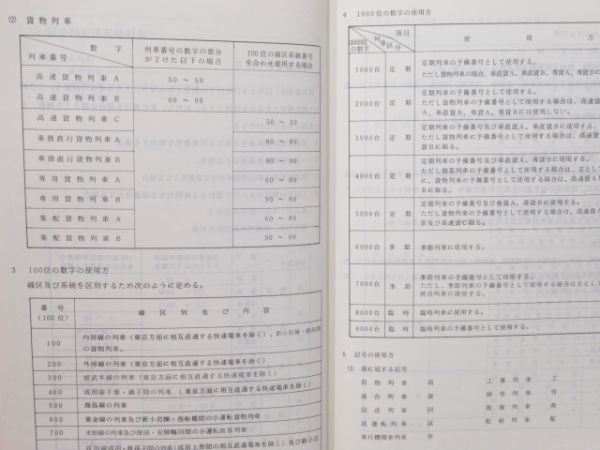 (2) 貨物列車
数字
列車番号
列車番号の数字の部分が2けた以下の場合
100位の線区系統番号を合わせ使用する場合
高速貨物列車A 50～59
高速貨物列車B 60～99
高速貨物列車C 50～59
車扱直行貨物列車A 60～89
車扱直行貨物列車B 90～99
専用貨物列車A 60～89
専用貨物列車B 90～99
集配貨物列車A 60～89
集配貨物列車B 90～99
3 100位の数字の使用方
線区及び系統を区別するため次のように定める。
番号(100位) 線区別及び内容
100 内房線の列車(東京方面に相互直通する快速電車を除く)、新小岩操・
の貨物列車。
200 外房線の列車(東京方面に相互直通する快速電車を除く)
300 総武本線の列車(東京方面に相互直通する快速電車を除く)
400 成田線千葉・銚子間の列車(東京方面に相互直通する快速電車を除く)
500 鹿島線の列車
600 業金線の列車及び新小岩操・西船橋間の小運転貨物列車
700 木原線の列車及び
4 1000位の数字の使用方
項目
列車区分
1000位の数字
使用方
1000台 定期 定期列車の予備番号として使用する。
ただし貨物列車の場合、車直貨A、車直貨B、専貨A、専貨Bに
2000台 定期 定期列車の予備番号として使用する。
ただし貨物列車の予備番号として使用する場合は、高速貨
A、車直貨B、専貨A、専貨Bには使用しない。
3000台 定期 定期列車の予備番号及び車直貨A、車直貨Bに使用する。
ただし貨物列車に予備番号として使用する場合は、高速貨
Bに限る。
4000台 定期 定期列車の予備番号及び車直貨A、専貨Bに使用する。
ただし旅客列車の予備番号として使用する場合は、主として
に、貨物列車の予備番号として使用する場合は、高速貨A
Bに限る。
5000台 定期 定期列車の予備番号及び専貨A、専貨Bに使用する。
ただし貨物列車の予備番号として使用する場合は、高速貨A
B及び高速貨C限る。
6000台 季節 季節列車に使用する。
7000台 季節 季節列車の予備番号として使用する。
ただし、季節列車の予備番号として使用する場合は主とし
臨時列車に使用する。
8000台 臨時 臨時列車に使用する。
9000台 臨時 臨時列車の予備番号として使用する。
5 記号の使用方
(1) 頭に冠する記号
貨物列車 貨 工事列車 工
排雪列車 雪
回送列車 回 救援列車 救
試運転列車 試 配給列車 配
単行機関車列車 単